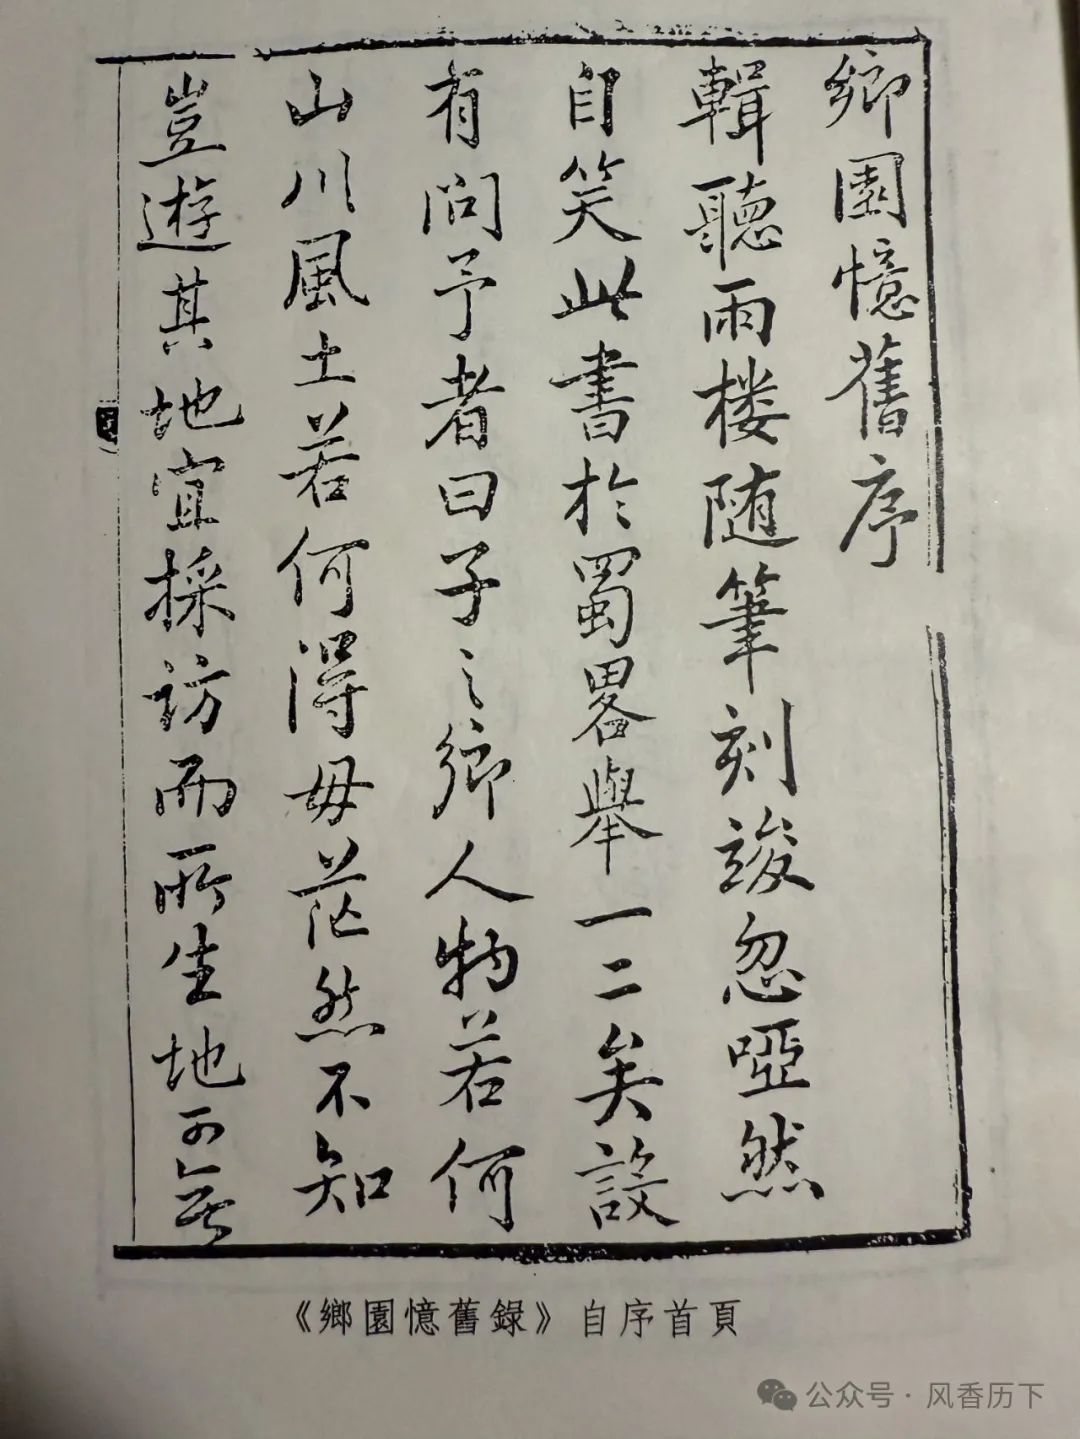 鄉園憶舊序
輯聽雨楼随筆刻竣忽啞然
自笑此書於蜀畧舉一二矣設
有問予者曰子之鄉人物若何
山川風土若何得毋茫然不知
豈遊其地宜採访而所生地可無
《鄉園憶舊録》自序首頁
公众号·风香历下